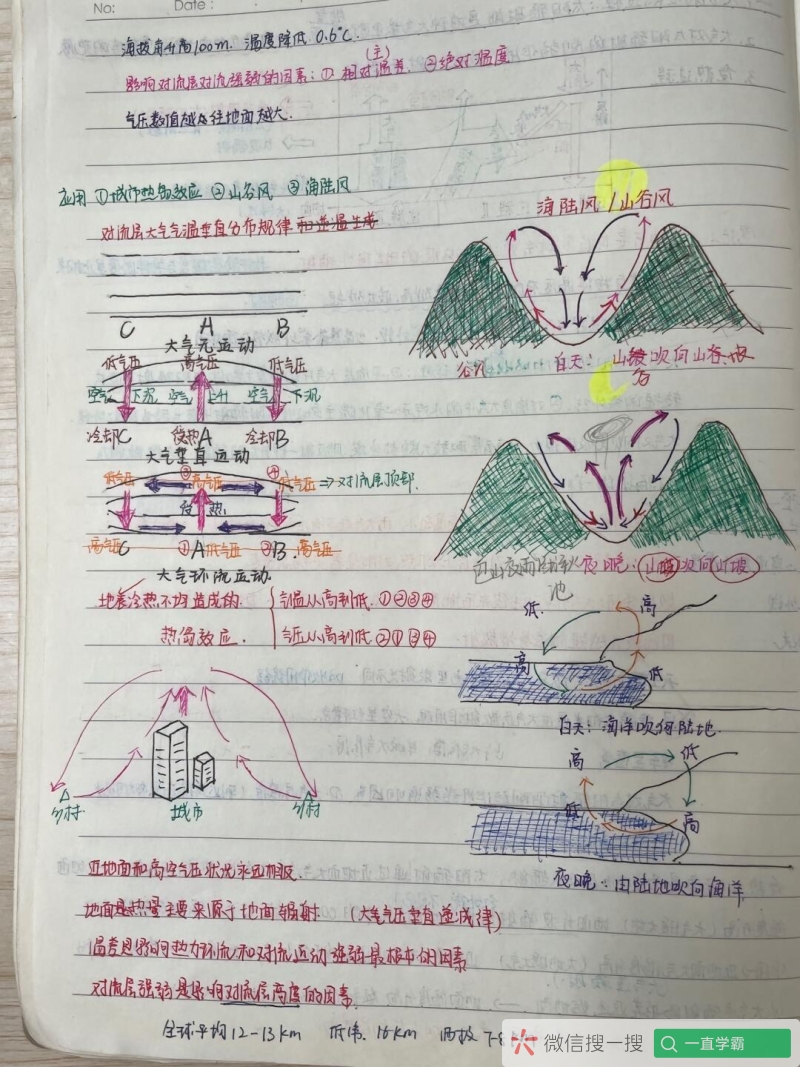 No:
Date:
海拔每升高100m. 温度降低 0.6℃.
(主)
影响对流层对流强弱的因素:① 相对温差. ②绝对温度
气压数值越往地面越大.
应用 ①城市热岛效应 ②山谷风 ③海陆风
对流层大气气温垂直分布规律和逆温生成
海陆风/山谷风
C A B
大气无运动
低气压 高气压 低气压
空气 下沉 空气 上升 空气 下沉
冷却C 受热A 冷却B
大气垂直运动
谷风
白天: 山谷
低气压 ③ 高气压 ④ 低气压 ⇒对流层顶部.
受热
高气压C ① A低气压 ②B 高气压
大气环流运动
巴山夜雨涨秋池
夜晚: 山坡吹向
地表冷热不均造成的
热岛效应.
气温从高到低. ①②③④
气压从高到低 ②①③④
低. 高
高 低
白天: 海洋吹向陆地.
高 低
低 高
夜晚: 由陆地吹向海洋
乡村 城市 乡村
近地面和高空气压状况永远相反.
地面是热量主要来源于地面辐射 (大气气压垂直递减律)
温差是影响热力环流和对流运动强弱最根本的因素
对流层强弱是影响对流层高度的因素.
全球平均12-13km 低纬. 16km 两极 7-8
微信搜一搜
一直学霸